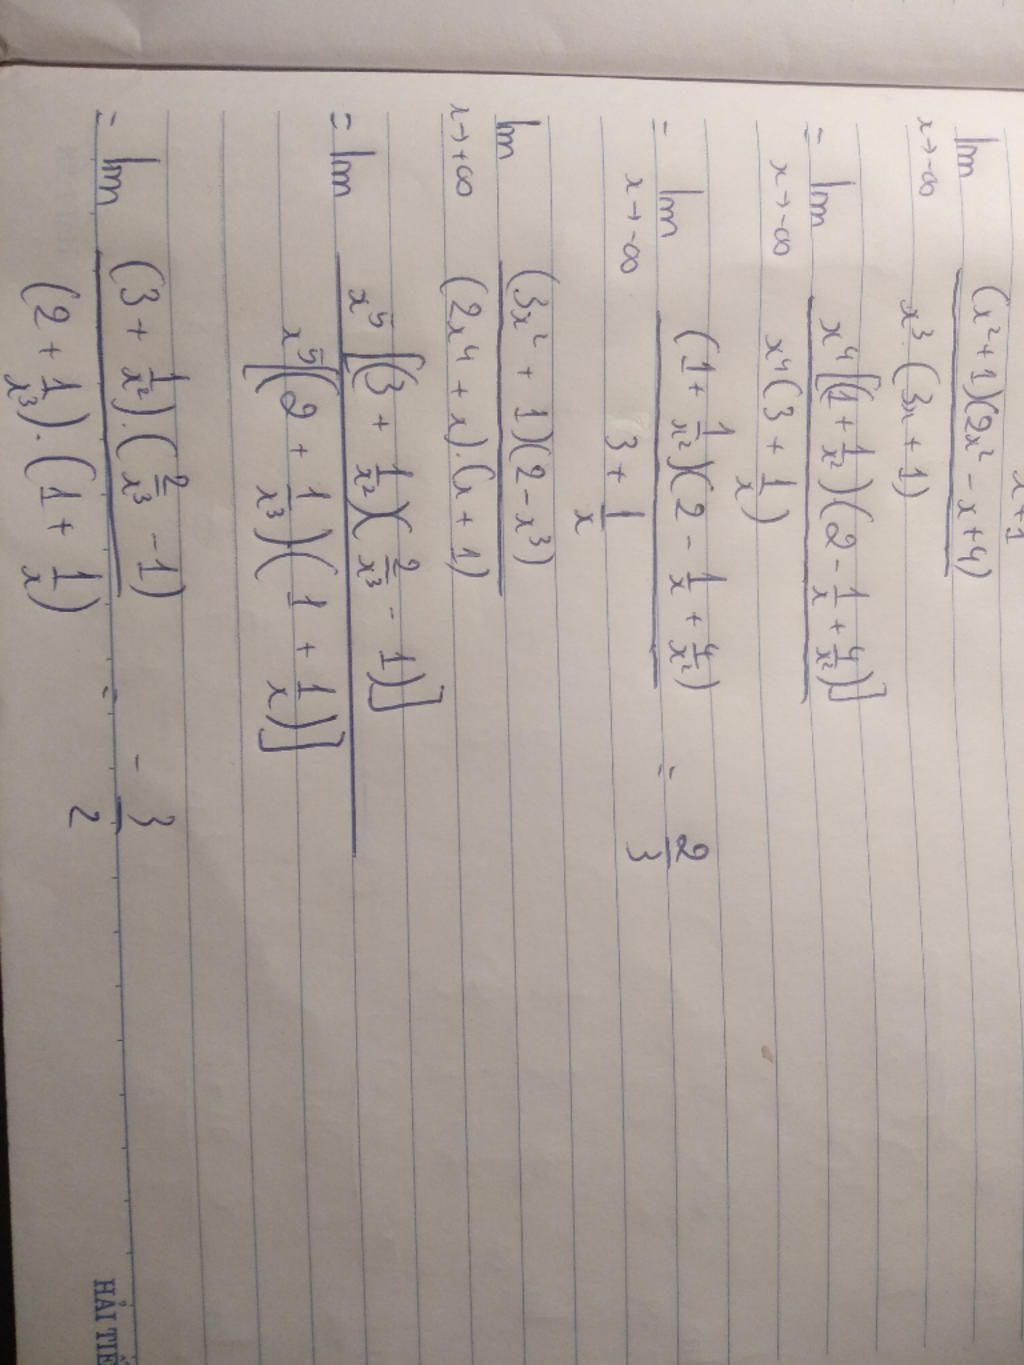 x+1
lim (x²+1)(2x²-x+4)
x→-∞ x³.(3x+1)
= lim x⁴[(1+1/x²)(2-1/x+4/x²)]
x→-∞ x⁴(3+1/x)
= lim (1+1/x²)(2-1/x+4/x²) = 2/3
x→-∞ 3+1/x
lim (3x²+1)(2-x³)
x→+∞ (2x⁴+x).(x+1)
= lim x⁵[(3+1/x²)(2/x³-1)]
x⁵[(2+1/x³)(1+1/x)]
= lim (3+1/x²).(2/x³-1) = -3/2
(2+1/x³).(1+1/x)
HẢI TIẾ